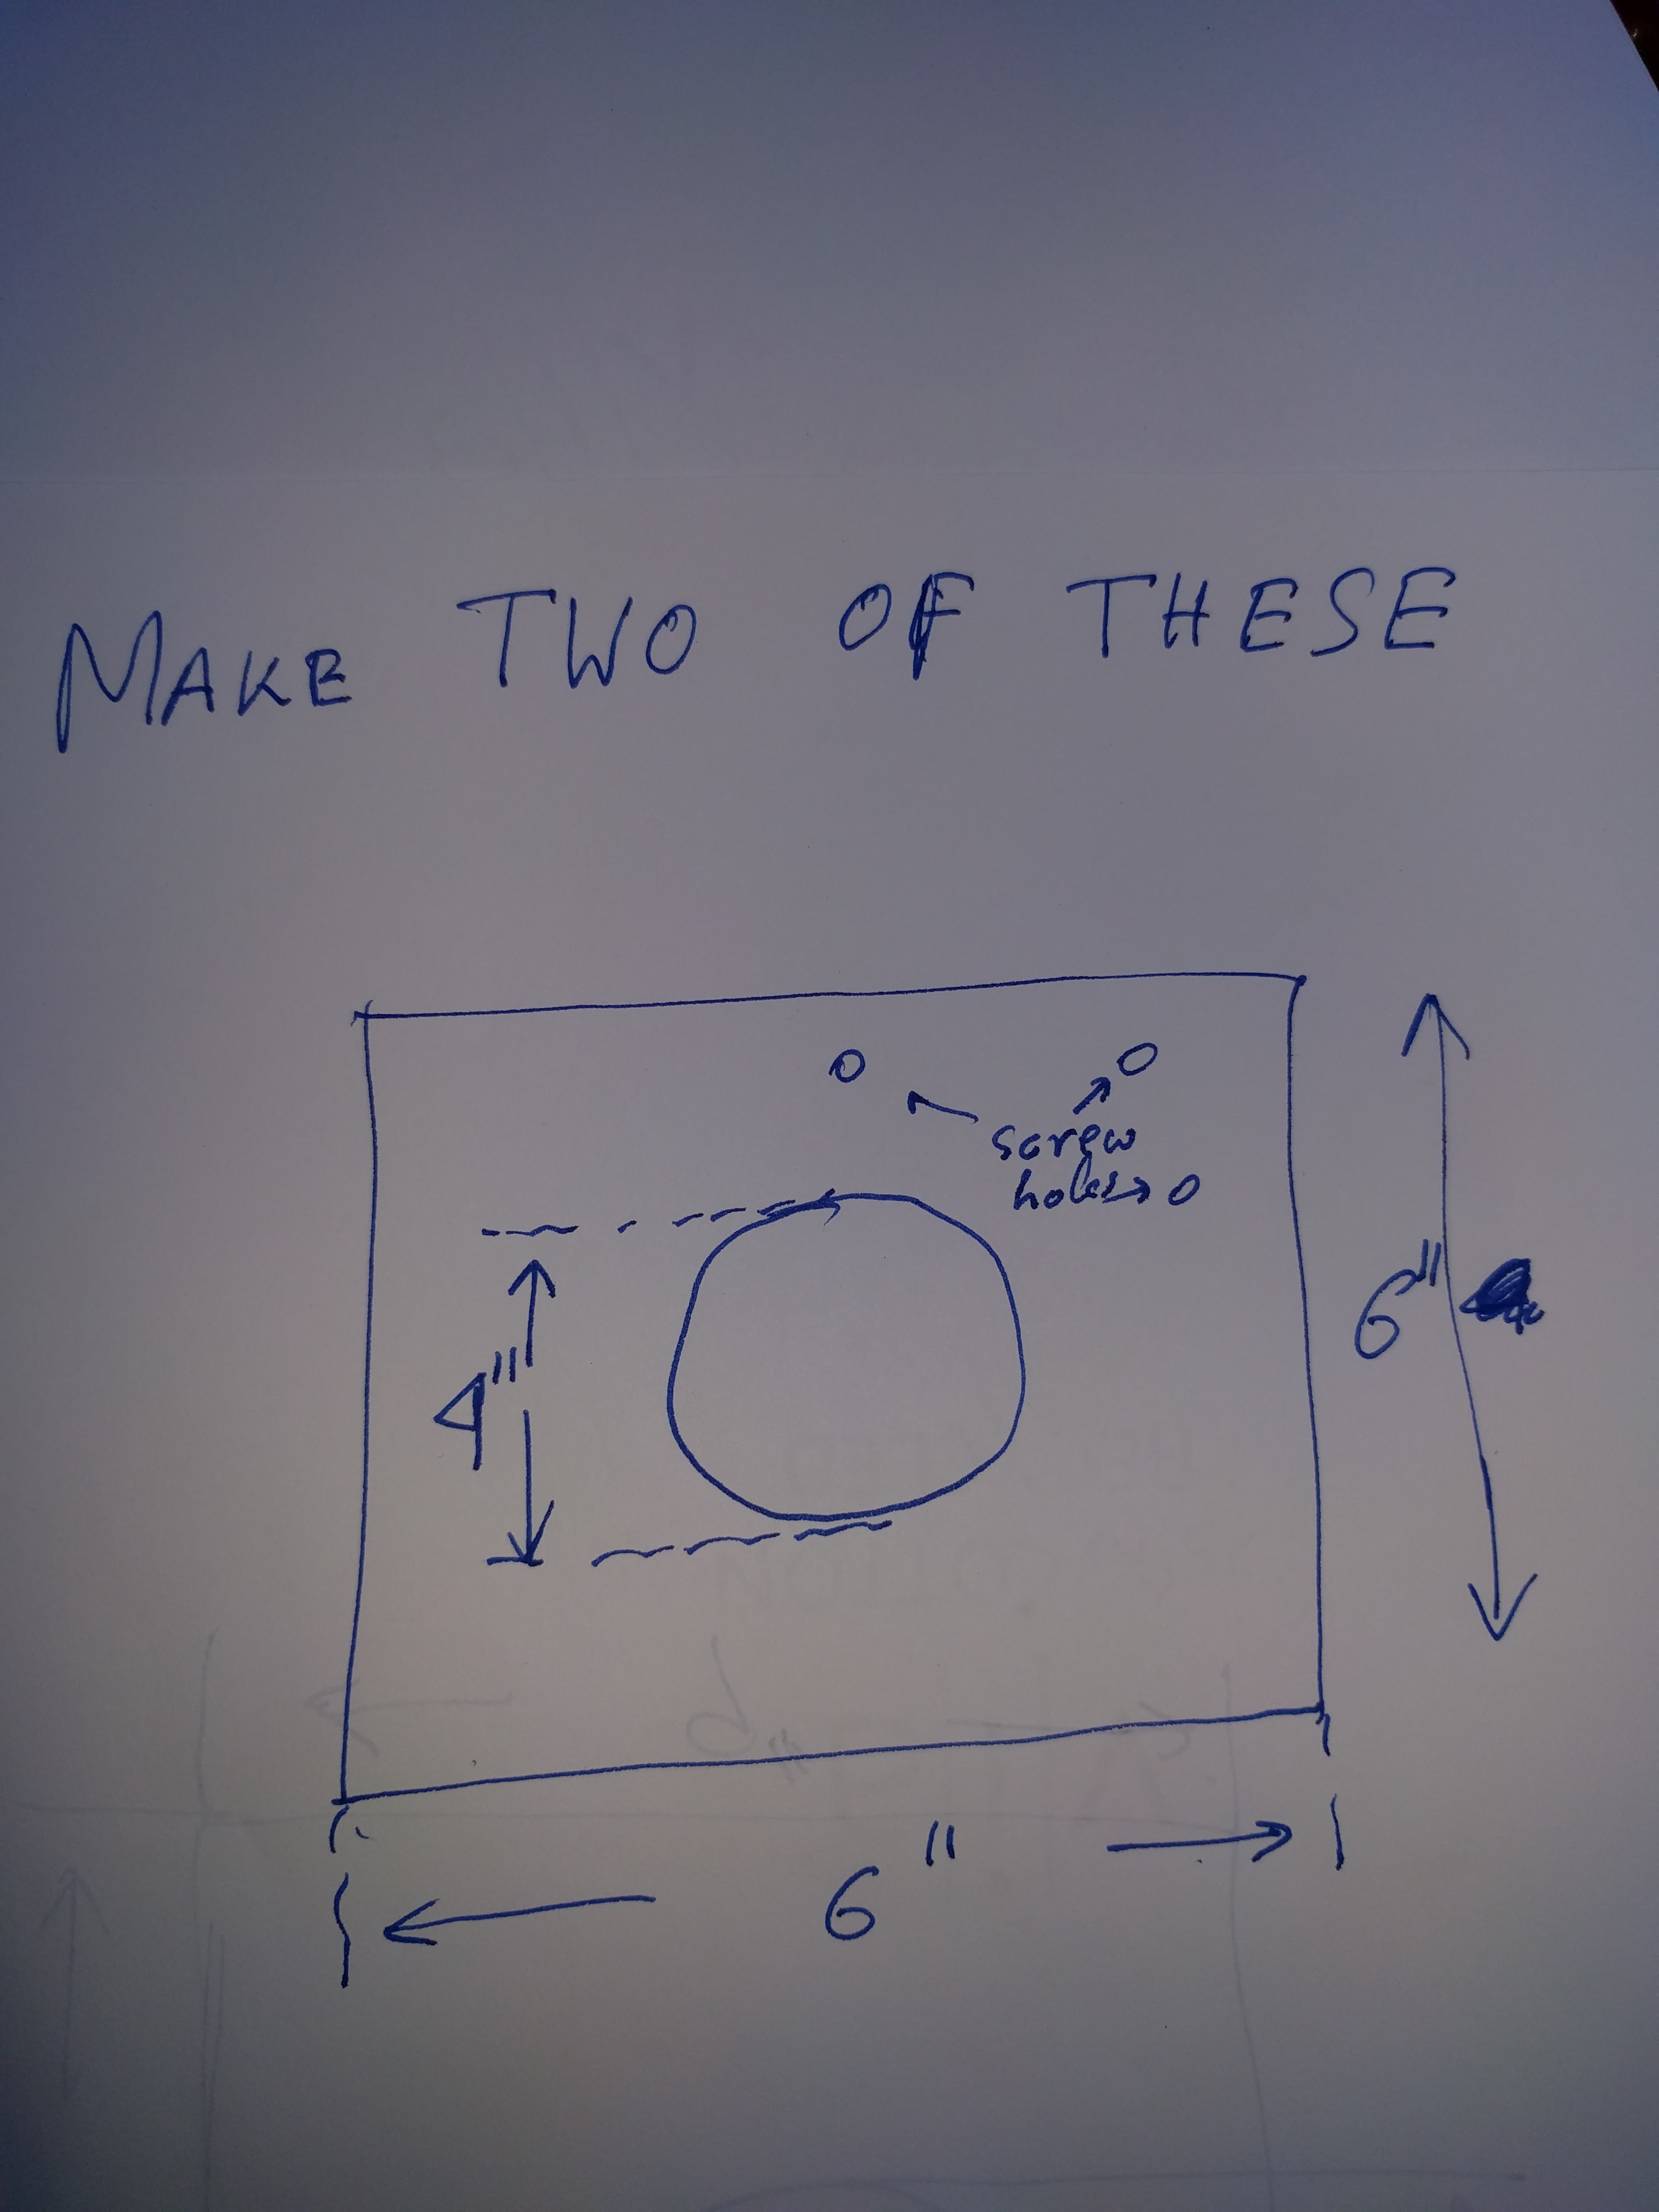 MAKE TWO OF THESE
screw
holes
6"
4"
6"